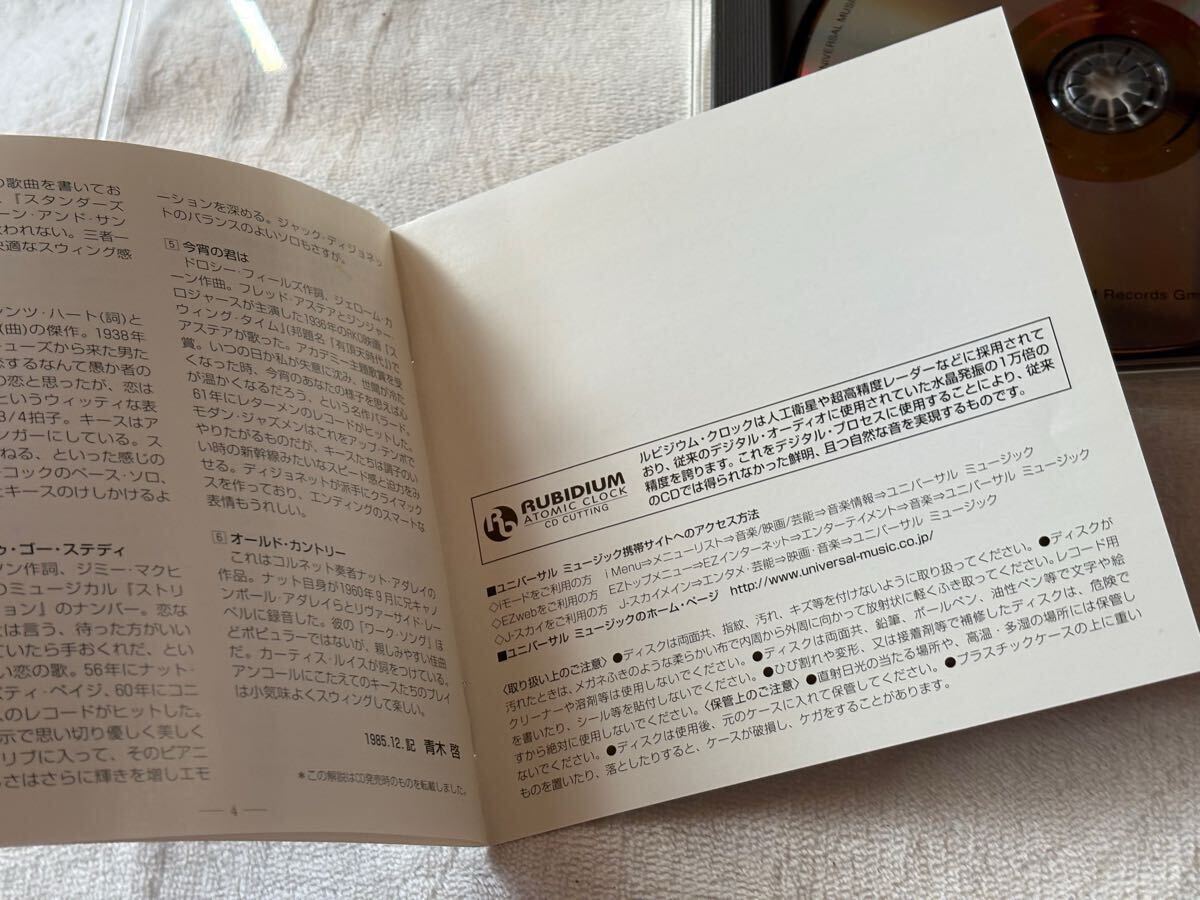 の歌曲を書いてお
、『スタンダーズ
ーン・アンド・サン
われない。三者一
快適なスウィング感
ンツ・ハート(詞)と
(曲)の傑作。1938年
ューズから来た男た
恋するなんて愚か者の
の恋と思ったが、恋は
というウィッティな表
3/4拍子。キースはア
ンガーにしている。ス
ねる、といった感じの
ーコックのベース・ソロ、
とキースのけしかけるよ
ゥ・ゴー・ステディ
ソン作詞、ジミー・マクヒ
のミュージカル『ストリ
ション』のナンバー。恋な
は言う、待った方がいい
ていたら手おくれだ、とい
い恋の歌。56年にナット・
ティ・ペイジ、60年にコニ
スのレコードがヒットした。
示で思い切り優しく美しく
リブに入って、そのピアニ
さはさらに輝きを増しエモ
ーションを深める。ジャック・ディジョネッ
トのバランスのよいソロもさすが。
5 今宵の君は
ドロシー・フィールズ作詞、ジェローム・カ
ーン作曲。フレッド・アステアとジンジャー・
ロジャースが主演した1936年のRKO映画『ス
ウィング・タイム』(邦題名『有頂天時代』)で
アステアが歌った。アカデミー主題歌賞を受
賞。いつの日か私が失意に沈み、世間が冷た
くなった時、今宵のあなたの様子を思えば心
が温かくなるだろう、という名作バラード。
61年にレターメンのレコードがヒットした。
モダン・ジャズメンはこれをアップ・テンポで
やりたがるものだが、キースたちは調子のい
い時の新幹線みたいなスピード感と迫力をみ
せる。ディジョネットが派手にクライマック
スを作っており、エンディングのスマートな
表情もうれしい。
6 オールド・カントリー
これはコルネット奏者ナット・アダレイの
作品。ナット自身が1960年9月に兄キャノ
ンボール・アダレイらとリヴァーサイド・レー
ベルに録音した。彼の『ワーク・ソング』ほ
どポピュラーではないが、親しみやすい佳曲
だ。カーティス・ルイスが詞をつけている。
アンコールにこたえてのキースたちのプレイ
は小気味よくスウィングして楽しい。
1985.12.記 青木 啓
＊この解説はCD発売時のものを転載しました。
— 4 —
Rb RUBIDIUM
ATOMIC CLOCK
CD CUTTING
ルビジウム・クロックは人工衛星や超高精度レーダーなどに採用されて
おり、従来のデジタル・オーディオに使用されていた水晶発振の1万倍の
精度を誇ります。これをデジタル・プロセスに使用することにより、従来
のCDでは得られなかった鮮明、且つ自然な音を実現するものです。
■ユニバーサル ミュージック携帯サイトへのアクセス方法
◇iモードをご利用の方 i Menu⇒メニューリスト⇒音楽/映画/芸能⇒音楽情報⇒ユニバーサル ミュージック
◇EZwebをご利用の方 EZトップメニュー⇒EZインターネット⇒エンターテイメント⇒音楽⇒ユニバーサル ミュージック
◇J-スカイをご利用の方 J-スカイメイン⇒エンタメ・芸能⇒映画・音楽⇒ユニバーサル ミュージック
■ユニバーサル ミュージックのホーム・ページ http://www.universal-music.co.jp/
〈取り扱い上のご注意〉●ディスクは両面共、指紋、汚れ、キズ等を付けないように取り扱ってください。●ディスクが
汚れたときは、メガネふきのような柔らかい布で内周から外周に向かって放射状に軽くふき取ってください。レコード用
クリーナーや溶剤等は使用しないでください。●ディスクは両面共、鉛筆、ボールペン、油性ペン等で文字や絵
を書いたり、シール等を貼付しないでください。●ひび割れや変形、又は接着剤等で補修したディスクは、危険で
すから絶対に使用しないでください。〈保管上のご注意〉●直射日光の当たる場所や、高温・多湿の場所には保管し
ないでください。●ディスクは使用後、元のケースに入れて保管してください。●プラスチックケースの上に重い
ものを置いたり、落としたりすると、ケースが破損し、ケガをすることがあります。
UNIVERSAL MUSIC
Records Gm